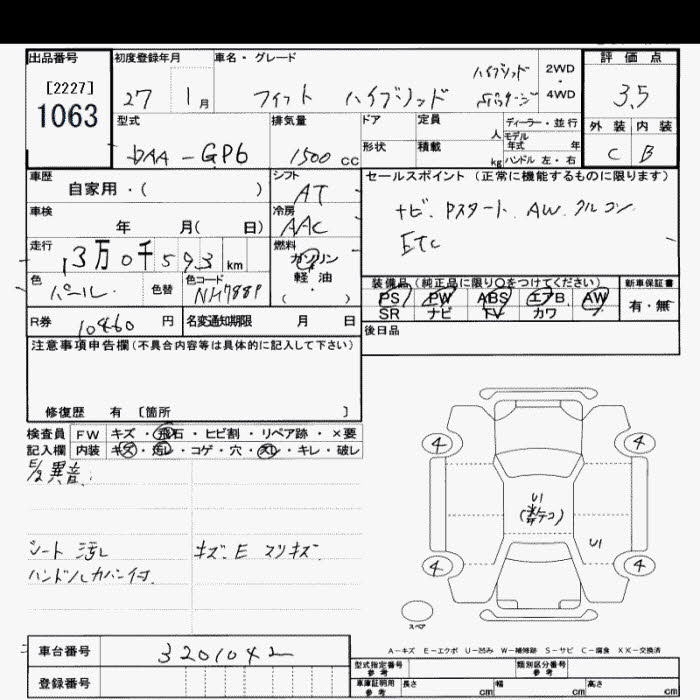 出品番号 初度登録年月 車名・グレード 評価点
[2227]
1063
27 1月 フィット ハイブリッド ハイブリッド 2WD ・ 4WD 3.5
型式 排気量 ドア 定員 人 ディーラー・並行 外装 内装
DAA-GP6 1500 cc 形状 積載 kg モデル年式 年 C B
ハンドル 左・右
車歴 シフト セールスポイント(正常に機能するものに限ります)
自家用・( ) AT
ナビ. Pスタート. AW. クルコン
車検 年 月( 日) 冷房 AAC
ETC
走行 13万0千593km 燃料 ガソリン 軽油 ・ ( )
色 パール. 色替 色コード NH788P
装備品(純正品に限り○をつけてください) 新車保証書
PS PW ABS エアB AW 有・無
SR ナビ TV カワ
R券 10460 円 名変通知期限 月 日
後日品
注意事項申告欄(不具合内容等は具体的に記入して下さい)
修復歴 有 [箇所 ]
検査員 FW キズ・飛石・ヒビ割・リペア跡・×要
記入欄 内装 キズ・汚レ・コゲ・穴・スレ・キレ・破レ
E/g 異音.
シート 汚レ キズ. E スリキズ
ハンドルカバー付.
4 4
U1
U1
4 4
スペア
A-キズ E-エクボ U-凹み W-補修跡 S-サビ C-腐食 XX-交換済
車台番号 3201042
登録番号
型式指定番号 参考 類別区分番号 参考
車庫証明用 参考 長さ cm 幅 cm 高さ cm